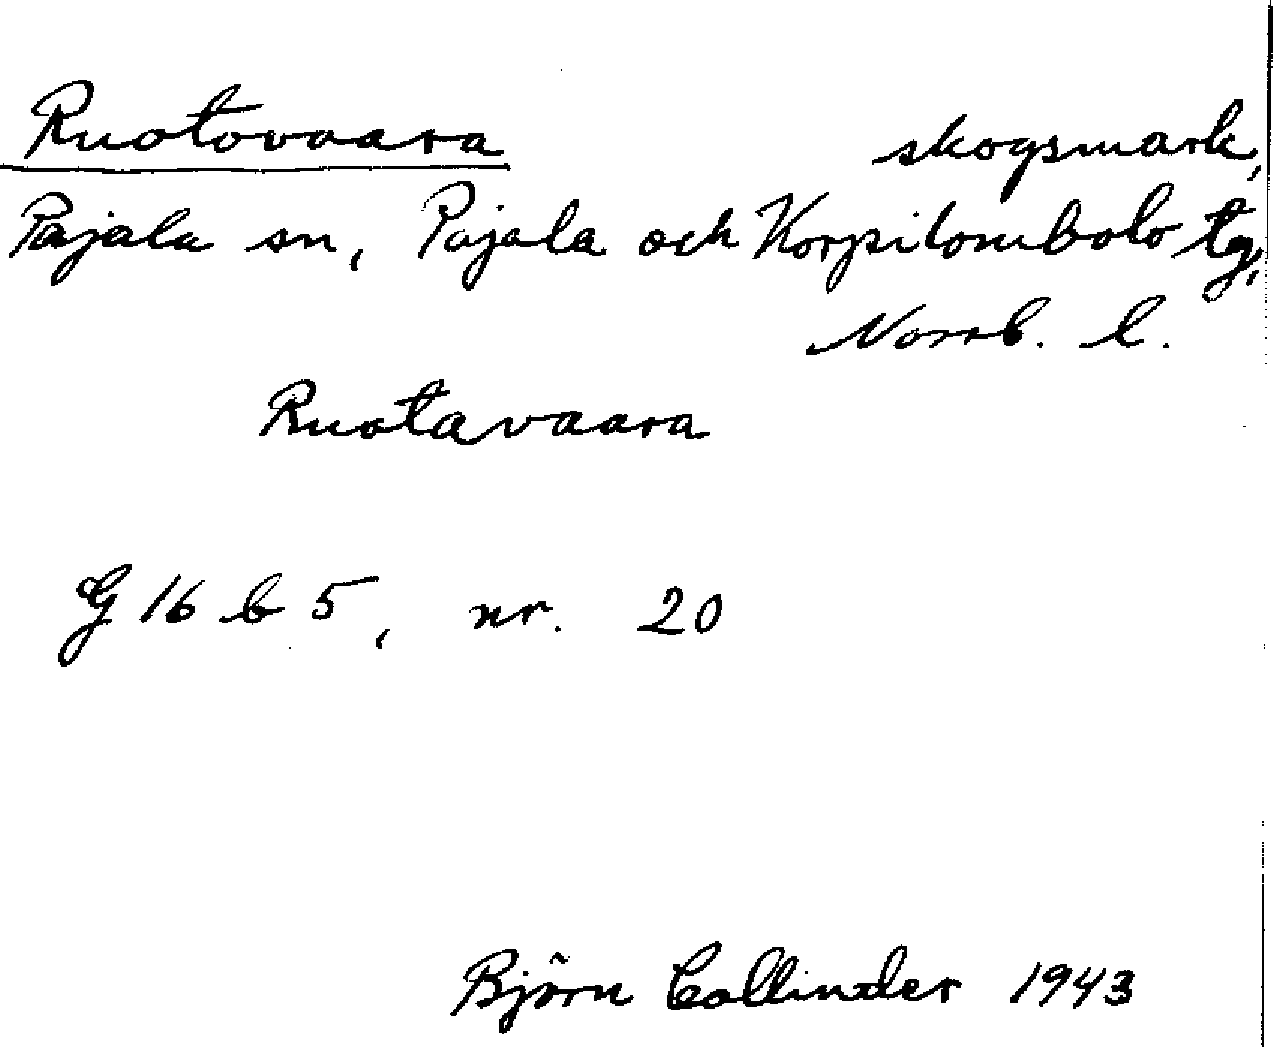 Ruotovaara skogsmark,
Pajala sn, Pajala och Korpilombolo tg,
Norrb. l.
Ruotavaara
G 16 b 5, nr. 20
Björn Collinder 1943